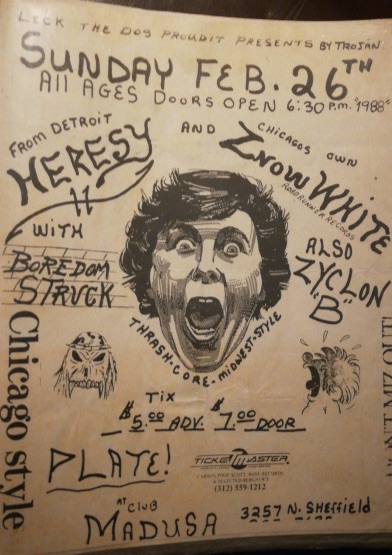 LICK THE DOG PRODUIT PRESENTS BY TROJAN
SUNDAY FEB. 26TH
All AGES DOORS OPEN 6:30 P.M. "1988"
FROM DETROIT
HERESY
II
AND
CHICAGOS OWN
ZNOW WHITE
ROADRUNNER RECORDS
WITH
BOREDOM
STRUCK
ALSO
ZYCLON
"B"
THRASH-CORE-MIDWEST-STYLE
Chicago style
TIX
$5.00 ADV. $7.00 DOOR
PLATE!
TICKETMASTER
(312) 559-1212
AT CLUB
MADUSA
3257 N. SHEFFIELD